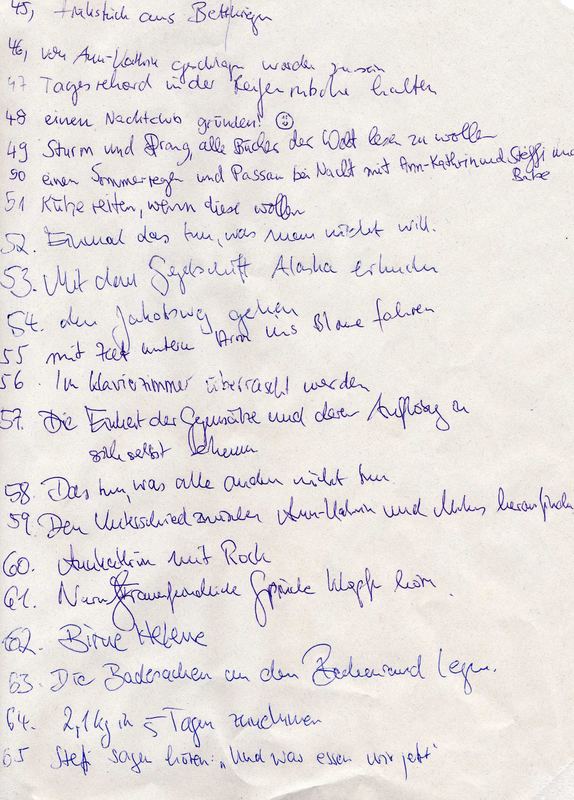 45, Frühstück aus
46, von Ann-Kathrin geschlagen worden zu sein
47 Tagesrekord in der Reifenrutsche halten
48 einen Nachtclub gründen! ☺
49 Sturm und Drang, alle Bücher der Welt lesen zu wollen
50 einen Sommerregen und Passau bei Nacht mit Ann-Kathrin und Steffi und
51 Kühe reiten, wenn diese wollen
52. Einmal das tun, was man nicht will.
53. Mit dem Segelschiff Alaska erkunden
54. den Jakobsweg gehen
55 mit Zelt unterm Arm ins Blaue fahren
56. Im Klavierzimmer überrascht werden
57. Die Einheit der Gegensätze und deren Auflösung in
sich selbst
58. Das tun, was alle anderen nicht tun.
59. Den Unterschied zwischen Ann-Kathrin und herausfinden
60. Annkathrin mit Rock
61. frauenfeindliche Sprüche klopfen hören.
62. Birne Helene
63. Die Badesachen an den Beckenrand legen.
64. 2,1kg in 5 Tagen zunehmen
65 Steffi sagen hören: „Und was essen wir jetzt"